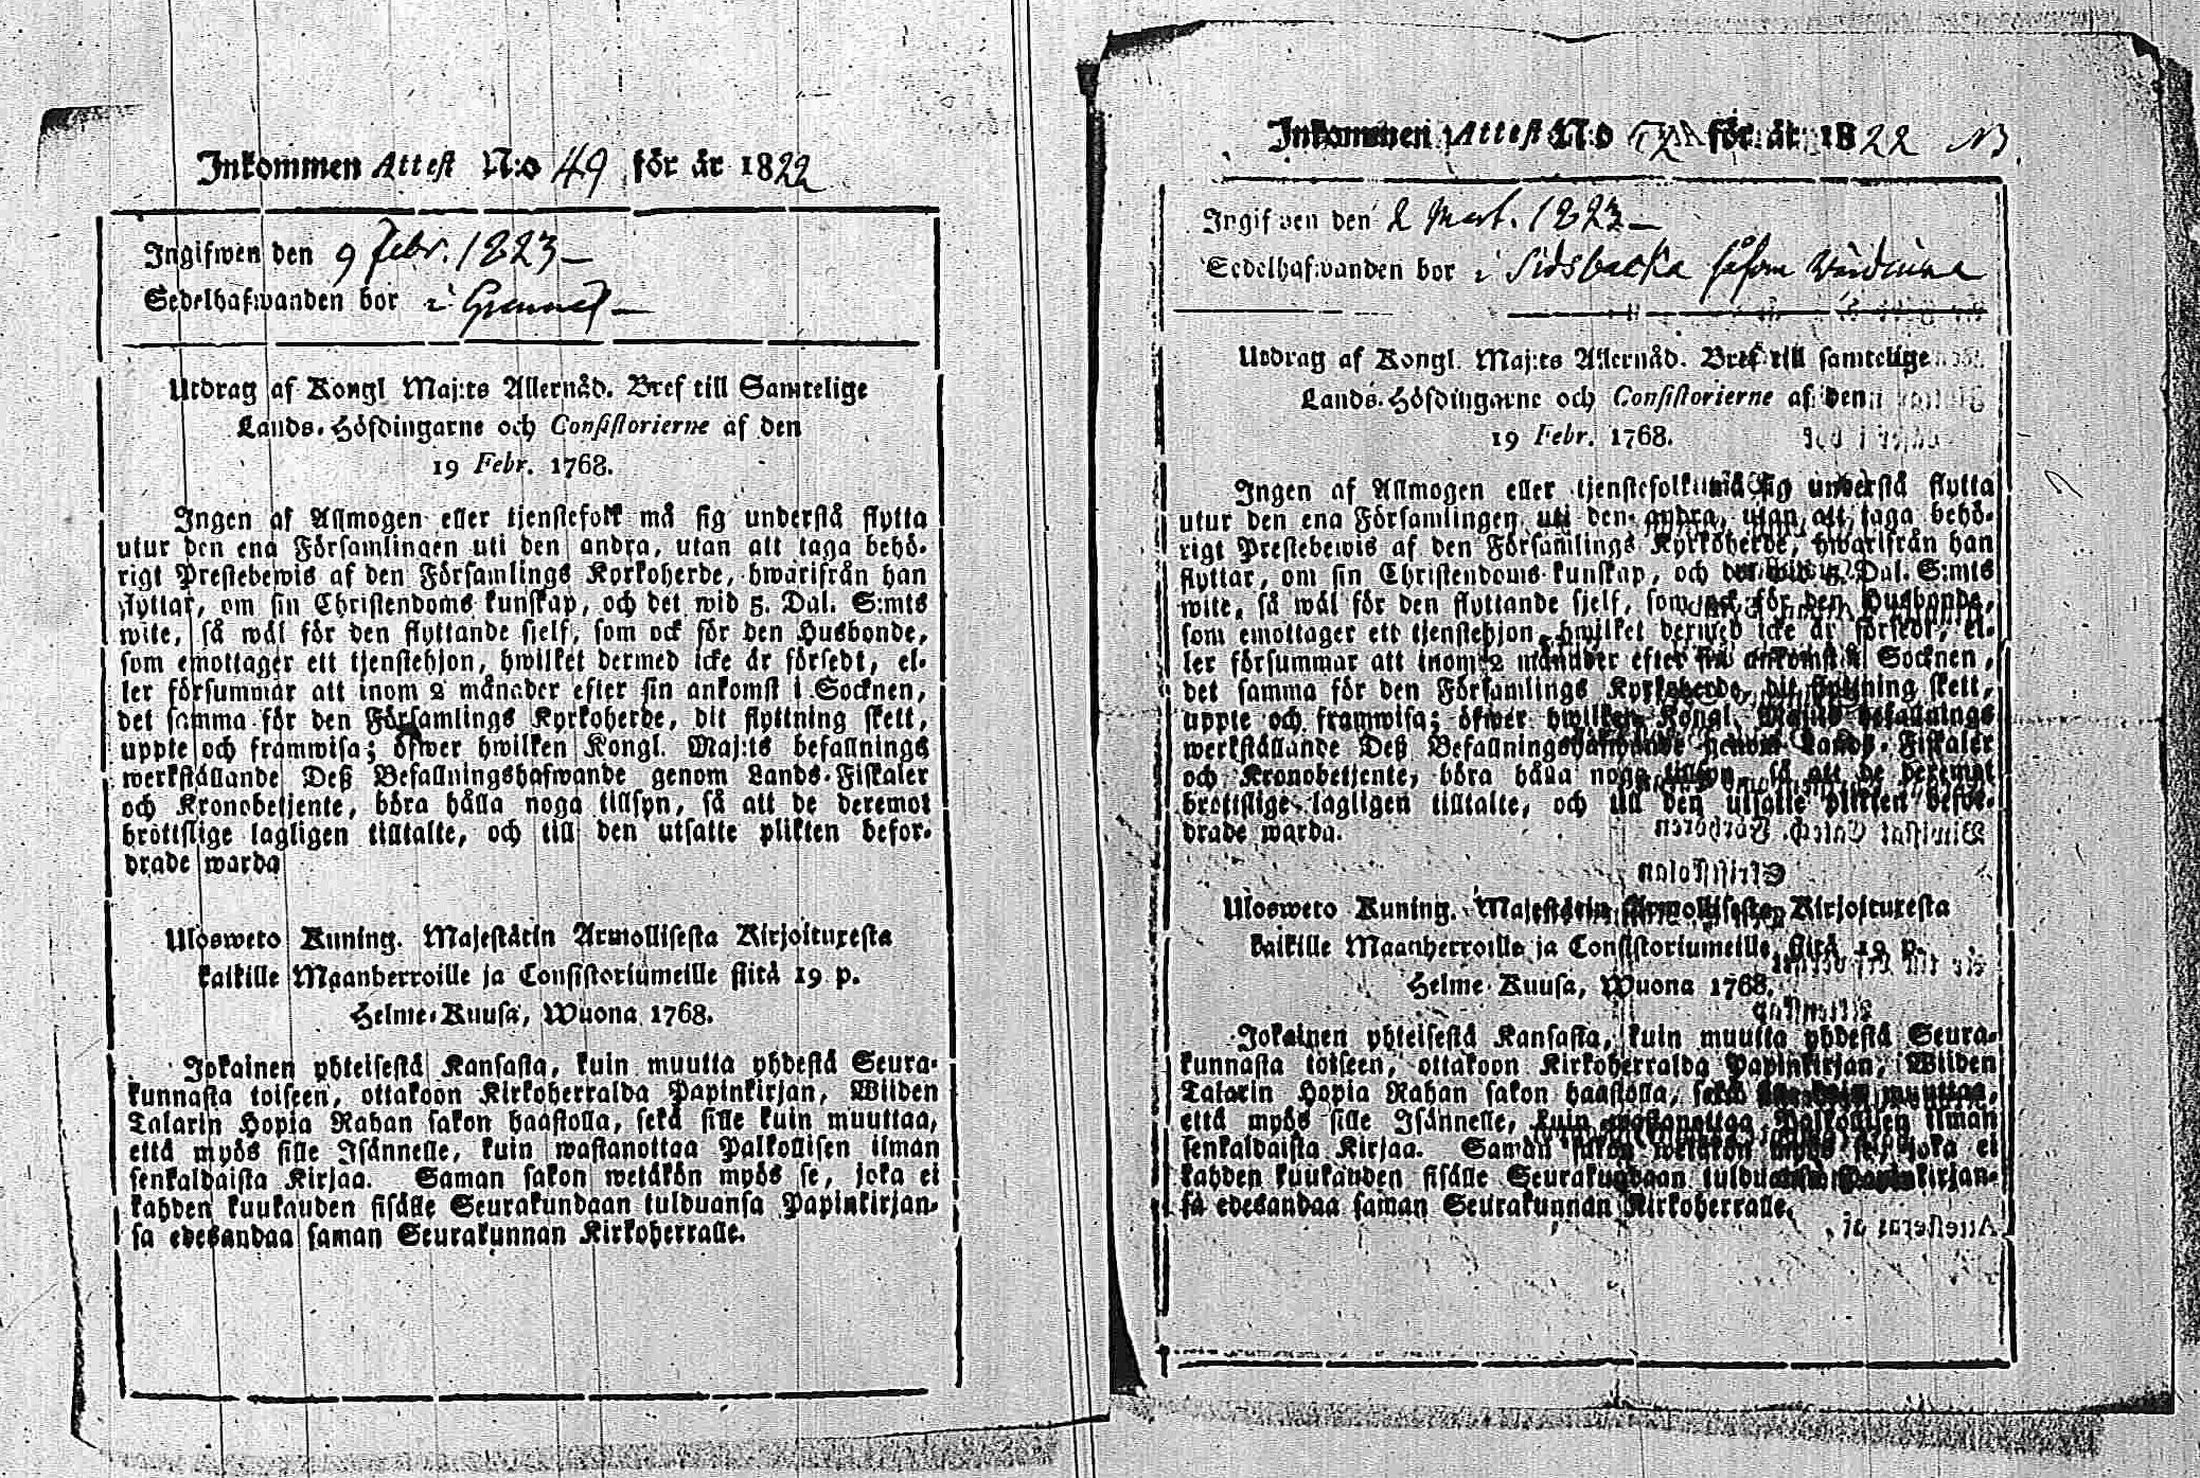 Inkommen Attest N:o 49 för år 1822
Ingifwen den 9 Febr. 1823
Sedelhafwanden bor i
Utdrag af Kongl Maj:ts Allernåd. Bref till Samtelige
Lands-Höfdingarne och Consistorierne af den
19 Febr. 1768.
Ingen af Allmogen eller tjenstefolk må sig understå flytta
utur den ena Församlingen uti den andra, utan att taga behö-
rigt Prestebewis af den Församlings Kyrkoherde, hwarifrån han
flyttar, om sin Christendoms kunskap, och det wid 5. Dal. S:mts
wite, så wäl för den flyttande sjelf, som ock för den Husbonde,
som emottager ett tjenstehjon, hwilket dermed icke är försedt, el-
ler försummar att inom 2 månader efter sin ankomst i Socknen,
det samma för den Församlings Kyrkoherde, dit flyttning skett,
uppte och framwisa; öfwer hwilken Kongl. Maj:ts befallnings
werkställande Deß Befallningshafwande genom Lands-Fiskaler
och Kronobetjente, böra hålla noga tillsyn, så att de deremot
brottslige lagligen tilltalte, och till den utsatte plikten befor-
drade warda
Ulosweto Kuning. Majestätin Armollisesta Kirjoituxesta
kaikille Maanherroille ja Consistoriumeille siitä 19 p.
Helme-Kuusa, Wuona 1768.
Jokainen yhteisestä Kansasta, kuin muutta yhdestä Seura-
kunnasta toiseen, ottakoon Kirkoherralda Papinkirjan, Wiiden
Talarin Hopia Rahan sakon haastolla, sekä sille kuin muuttaa,
että myös sille Isännelle, kuin wastanottaa Palkollisen ilman
senkaldaista Kirjaa. Saman sakon wetäkön myös se, joka ei
kahden kuukauden sisälle Seurakundaan tulduansa Papinkirjan-
sa edesandaa saman Seurakunnan Kirkoherralle.
Inkommen Attest N:o för år 1822
Ingifwen den 2 Mart. 1823
Sedelhafwanden bor i Sidsbacka såsom
Utdrag af Kongl. Maj:ts Allernåd. Bref till samtelige
Lands-Höfdingarne och Consistorierne af den
19 Febr. 1768.
Ingen af Allmogen eller tjenstefolk må sig understå flytta
utur den ena Församlingen uti den andra, utan att taga behö-
rigt Prestebewis af den Församlings Kyrkoherde, hwarifrån han
flyttar, om sin Christendoms kunskap, och det wid 5. Dal. S:mts
wite, så wäl för den flyttande sjelf, som ock för den Husbonde,
som emottager ett tjenstehjon, hwilket dermed icke är försedt, el-
ler försummar att inom 2 månader efter sin ankomst i Socknen,
det samma för den Församlings Kyrkoherde, dit flyttning skett,
uppte och framwisa; öfwer hwilken Kongl. Maj:ts befallnings
werkställande Deß Befallningshafwande genom Lands-Fiskaler
och Kronobetjente, böra hålla noga tillsyn, så att de deremot
brottslige lagligen tilltalte, och till den utsatte plikten befor-
drade warda.
Ulosweto Kuning. Majestätin Armollisesta Kirjoituxesta
kaikille Maanherroille ja Consistoriumeille, siitä 19 p.
Helme-Kuusa, Wuona 1768.
Jokainen yhteisestä Kansasta, kuin muutta yhdestä Seura-
kunnasta toiseen, ottakoon Kirkoherralda Papinkirjan, Wiiden
Talarin Hopia Rahan sakon haastolla, sekä sille kuin muuttaa,
että myös sille Isännelle, kuin wastanottaa Palkollisen ilman
senkaldaista Kirjaa. Saman sakon wetäkön myös se, joka ei
kahden kuukauden sisälle Seurakundaan tulduansa Papinkirjan-
sa edesandaa saman Seurakunnan Kirkoherralle.